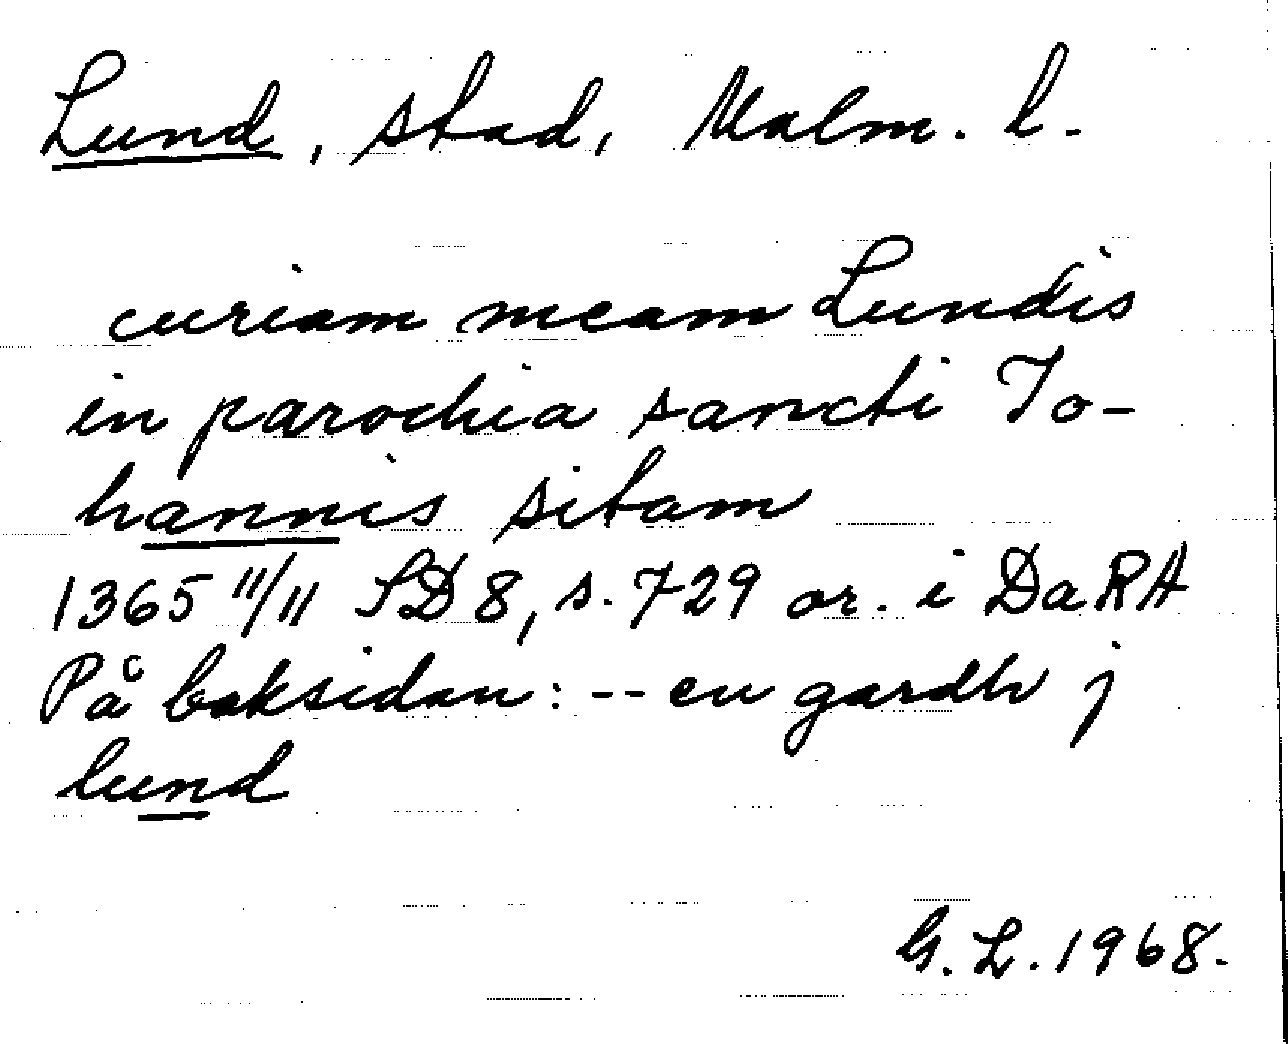 Lund, stad, Malm. l.
curiam meam Lundis
in parochia sancti Jo-
hannis sitam
1365 11/11 SD 8, s. 729 or. i DaRA
På baksidan: -- en gardh j
lund
G. L. 1968.